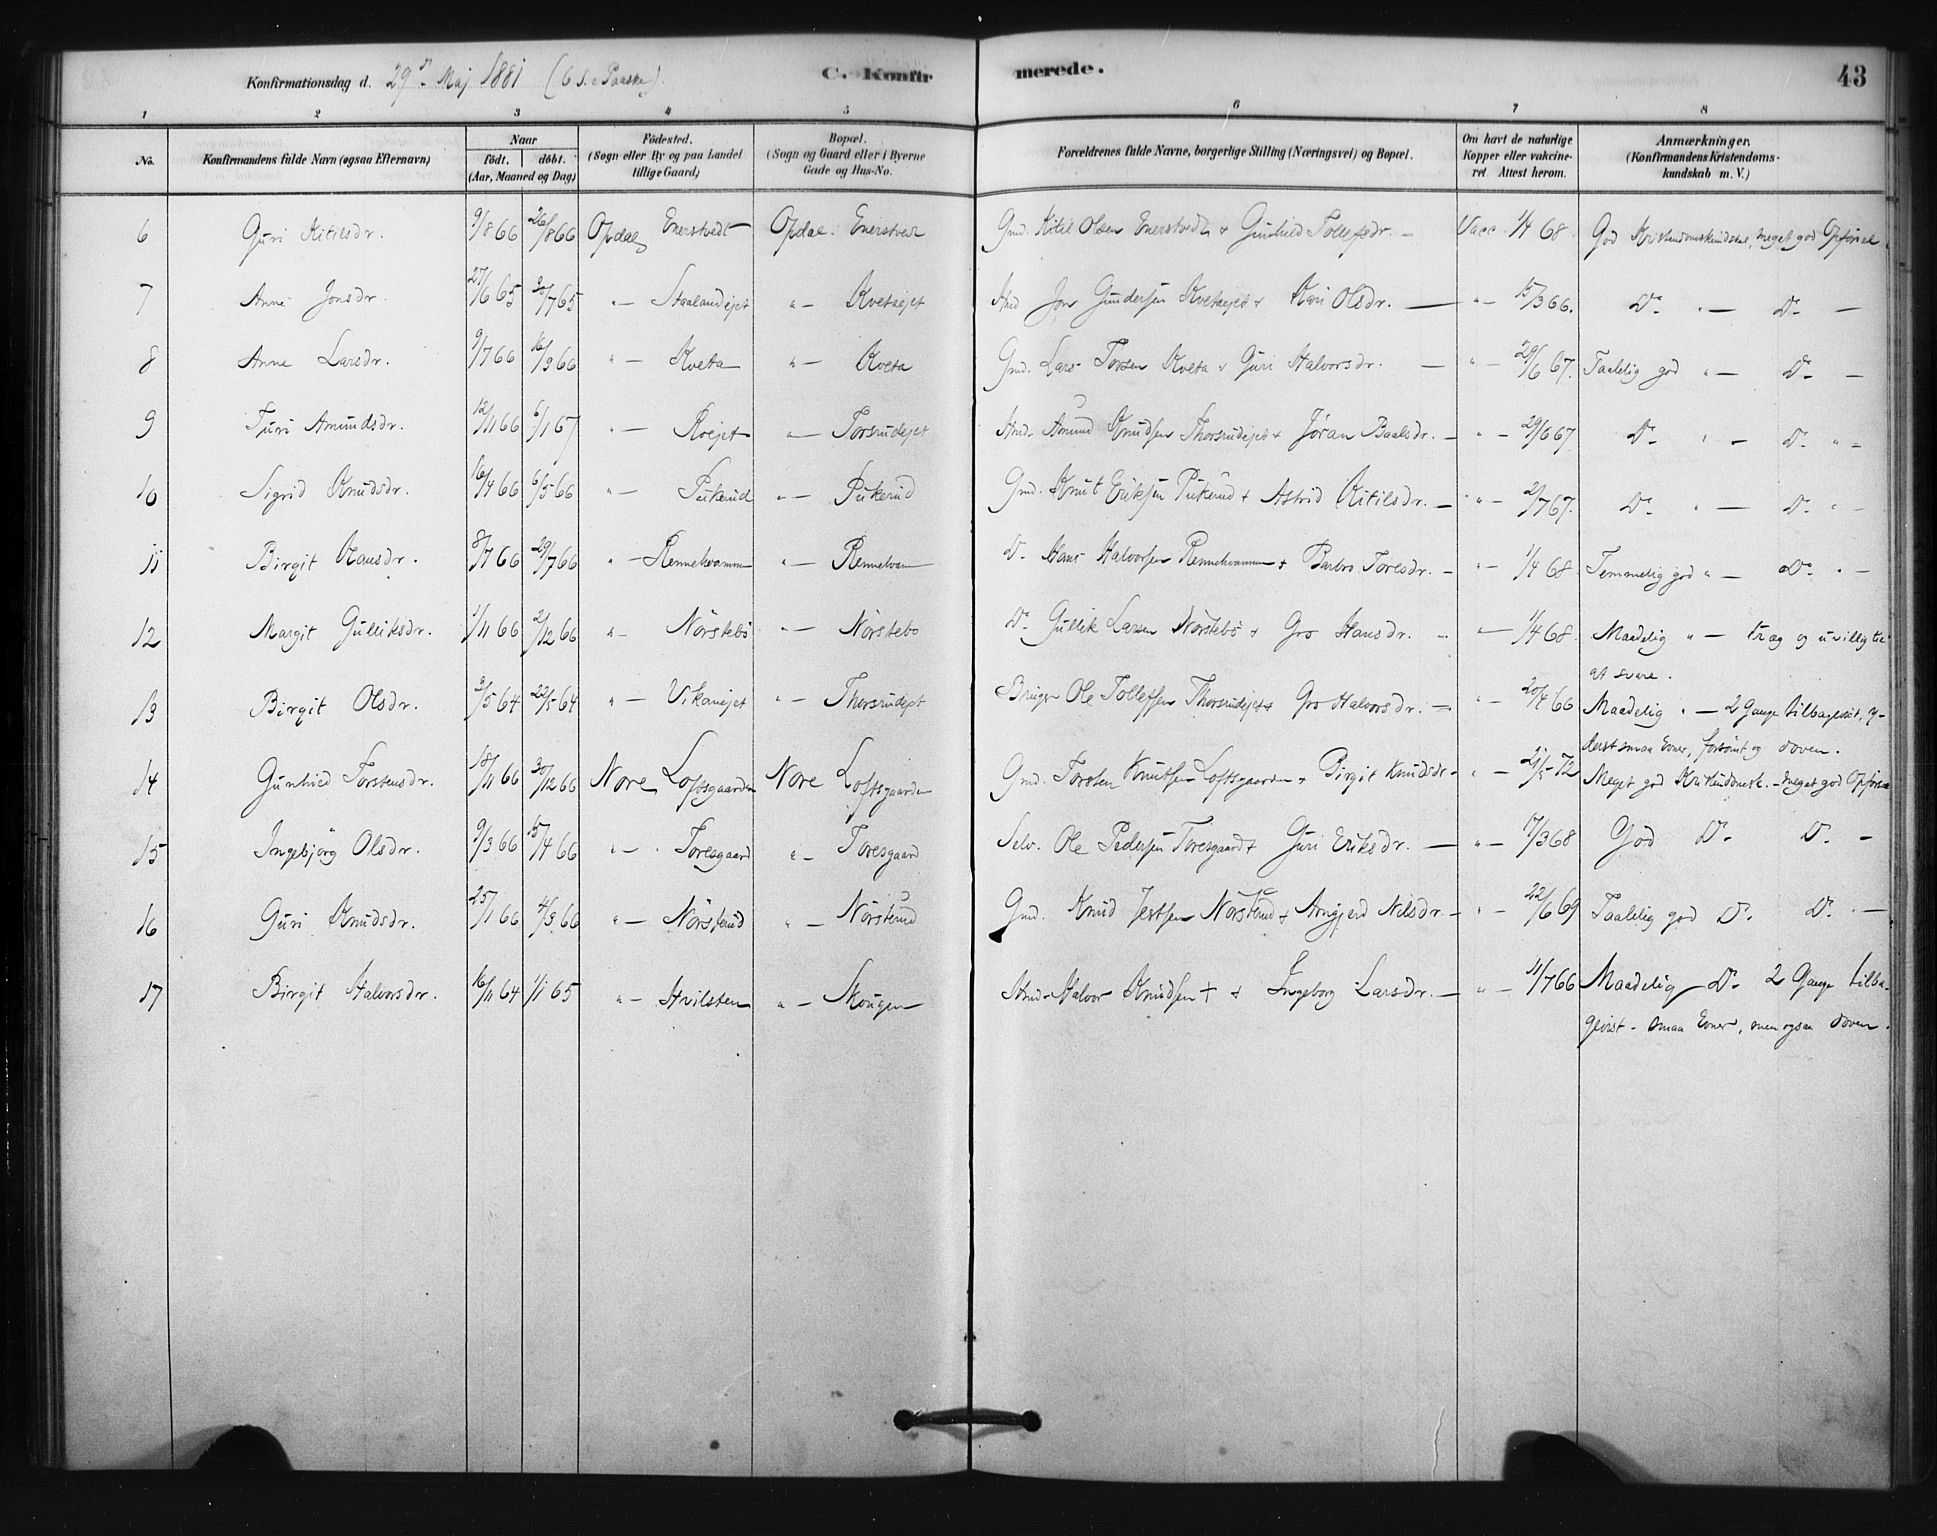 Konfirmationsdag d. 29de Maj 1881 (6 S. e. Paaske). C. Konfirmerede. 43
1 2 3 4 5 6 7 8
No. Konfirmandens fulde Navn (ogsaa Efternavn) Naar født. døbt. (Aar, Maaned og Dag) Fødested. (Sogn eller By og paa Landet tillige Gaard) Bopæl. (Sogn og Gaard eller i Byerne Gade og Hus-No. Forældrenes fulde Navne, borgerlige Stilling (Næringsvei) og Bopæl. Om havt de naturlige Kopper eller vakcineret Attest herom. Anmærkninger. (Konfirmandens Kristendomskundskab m. V.)
6 Guri Kitilsdr. 9/8 66 26/8 66 Opdal Enerstvedt Opdal Enerstvedt Gmd. Kitil Olsen Enerstvedt + Gunhild Tollefsdr. – Vacc. 1/4 68. God Kristendomskundskab, meget god Opførsel
7 Anne Jonsdr. 27/6 65 30/7 65 " — Staalandejet " — Kvetaejet Jon Gundersen Kvetaejet + Kari Olsdr. — " — 15/3 66. Do " — Do —
8 Anne Larsdr. 9/7 66 16/9 66 " — Kveta " — Kveta Gmd. Lars Torsen Kveta + Guri Halvorsdr. — " — 29/6 67. Taalelig god " — Do —
9 Turi Amundsdr. 12/11 66 6/1 67 " — Roejet " — Torsrudejet Amund Knudsen Thorsrudejet + Jøran Baalsdr. — " — 29/6 67 Do " — Do " —
10 Sigrid Knudsdr. 16/4 66 6/5 66 " — Pukerud " — Pukerud Gmd. Knut Eriksen Pukerud + Astrid Kitilsdr. — " — 2/7 67. Do " — Do " —
11 Birgit Hansdr. 8/7 66 29/7 66 " — Rennehvamm " — Rennehvam Do Hans Halvorsen Rennehvamm + Barbro Toresdr. — " — 1/4 68 Temmelig god " — Do " —
12 Margit Gulliksdr. 1/11 66 2/12 66 " — Nørstebø " — Nørstebø Do Gullik Larsen Nørstebø + Gro Hansdr. – " — 1/4 68. Maadelig " — træg og uvillig til
at svare.
13 Birgit Olsdr. 3/5 64 22/5 64 " — Vikanejet " — Thorsrudejet Bruger Ole Tollefsen Thorsrudejet + Gro Halvorsdr. — " — 20/4 66 Maadelig " — 2 Gange tilbagevist, y-
derst smaa Evner, forsømt og doven.
14 Gunhild Torstensdr. 18/11 66 30/12 66 Nore Loftsgaarden Nore Loftsgaarden Gmd. Torsten Knutsen Loftsgaarden + Birgit Knudsdr – " — 21/5 72 Meget god Kristendomsk. – meget god Opførsel
15 Ingebjørg Olsdr. 9/3 66 15/4 66 " — Toresgaard " — Toresgaard Selv. Ole Pedersen Toresgaard + Guri Eriksdr. — " — 17/3 68 God Do Do —
16 Guri Knudsdr. 25/1 66 4/3 66 " — Nørsterud " — Nørsterud Gmd. Knud Nørsterud + Arngjerd Nilsdr. — " — 22/6 69 Taalelig god Do Do " —
17 Birgit Halvorsdr. 16/11 64 1/1 65 " — Hvilsten " — Skougen Halvor Knudsen † + Ingeborg Larsdr. — " — 11/7 66 Maadelig Do 2 Gange tilba-
gevist – smaa Evner, men ogsaa doven.